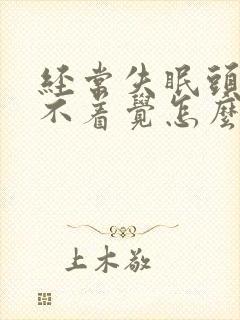 經常失眠頭
不着覺怎麼
上木敬